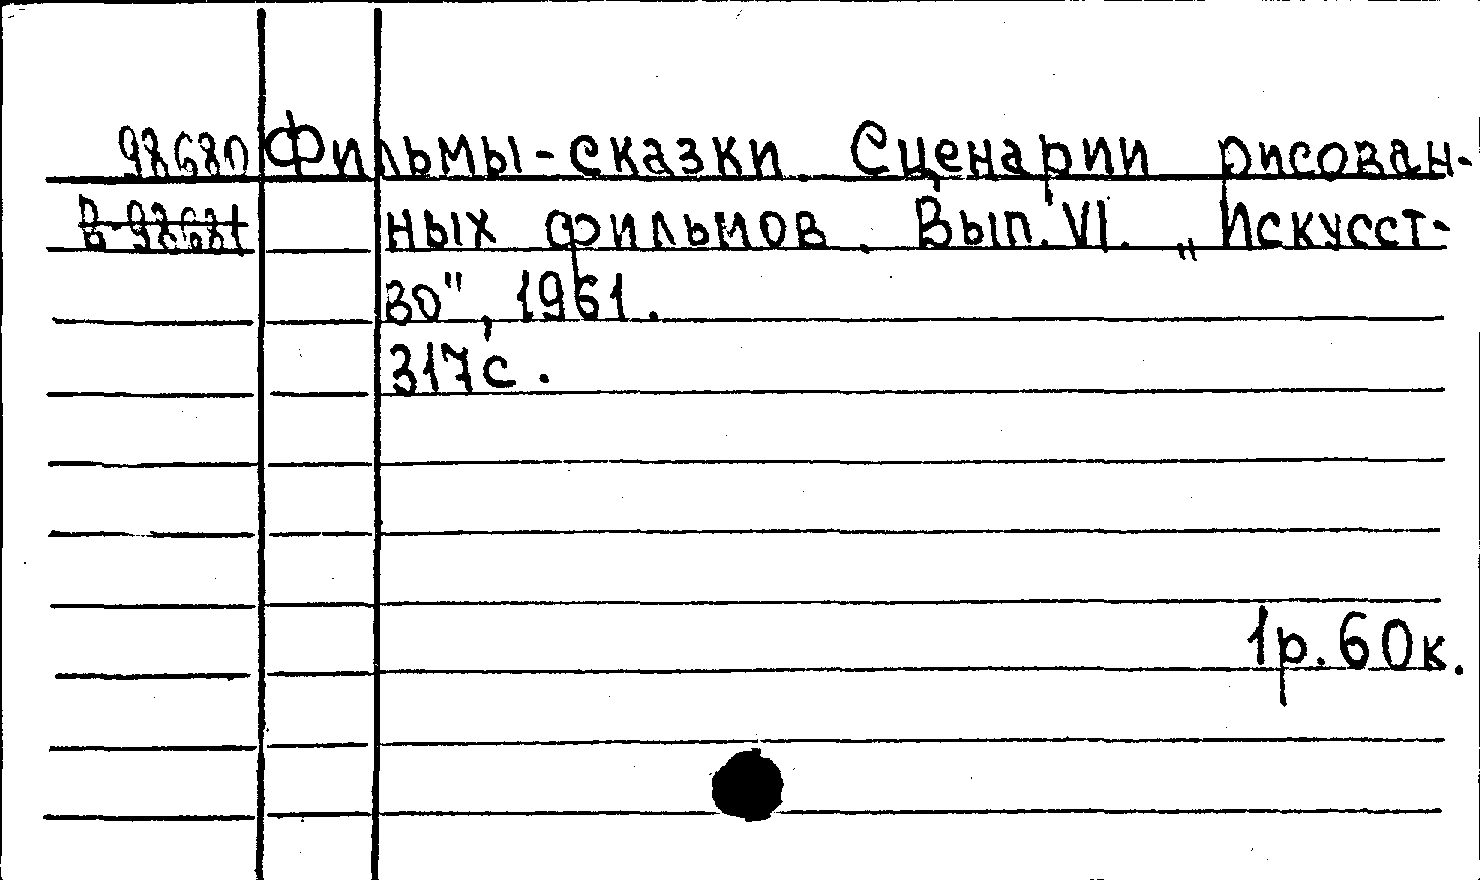 98680 Фильмы-сказки. Сценарии рисован-
В-98681 ных фильмов. Вып. VI. „Искусст-
во", 1961.
317с.
1р.60к.